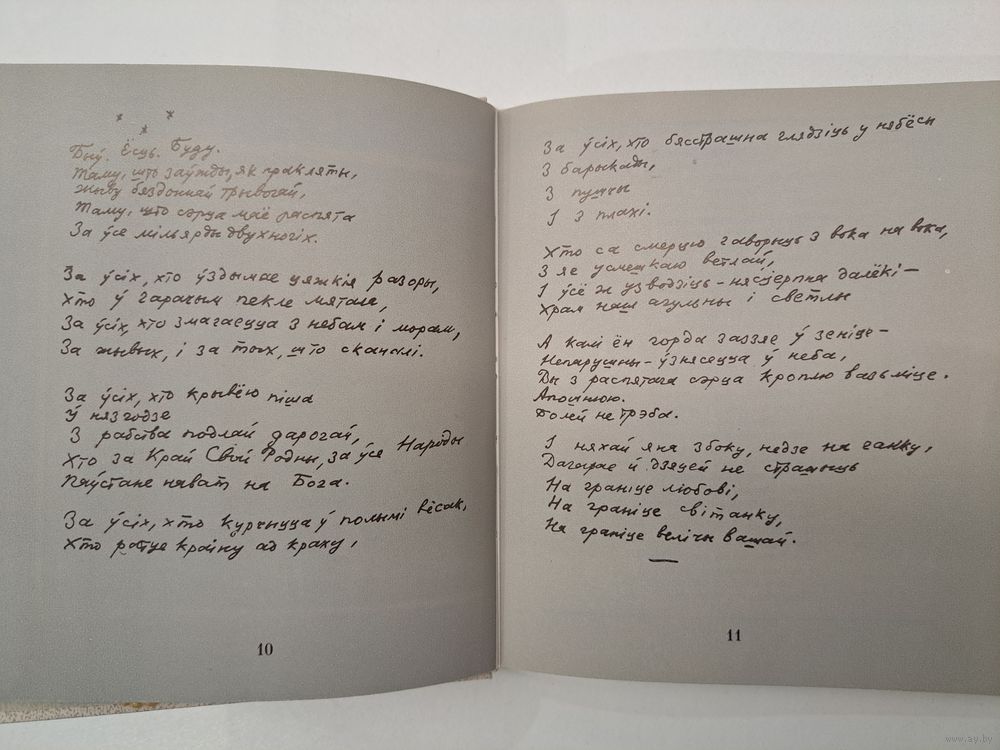 * * *
Быў. Ёсць. Буду.
Таму, што заўжды, як пракляты,
Жыву бяздоннай трывогай,
Таму, што сэрца маё распята
За ўсе мільярды двухногіх.
За ўсіх, хто ўздымае цяжкія разоры,
Хто ў гарачым пекле мяташ,
За ўсіх, хто змагаецца з небам і морам,
За жывых, і за тых, што сканалі.
За ўсіх, хто крывёю піша
Ў нязгодзе
З рабства подлай дарогай,
Хто за Край Свой Родны, за ўсе Народы
Паўстане нават на Бога.
За ўсіх, хто курчыцца ў полымі вёсак,
Хто ратуе краіну ад краху,
10
За ўсіх, хто бясстрашна глядзіць у нябёсы
З барыкады,
З пушчы
І з плахі.
Хто са смерцю гаворыць з вока на вока,
З яе усмешкаю ветлай,
І ўсё ж узводзіць - нясцерпна далёкі -
Храм наш агульны і светлы
А калі ён горда заззяе ў зеніце -
Непарушны - ўзнясецца ў неба,
Ды з распятага сэрца кроплю вазьміце.
Апошнюю.
Болей не трэба.
І няхай яна збоку, недзе на ганку,
Дагарае й дзяцей не страшыць
На граніце любові,
На граніце світанку,
На граніце велічы вашай.
11
www.ay.by